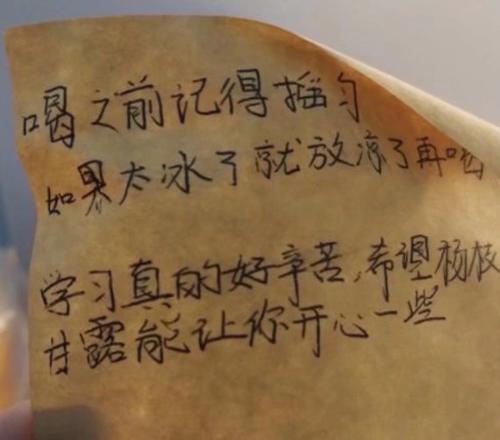 喝之前记得摇匀
如果太冰了就放凉了再喝
学习真的好辛苦,希望杨枝
甘露能让你开心一些